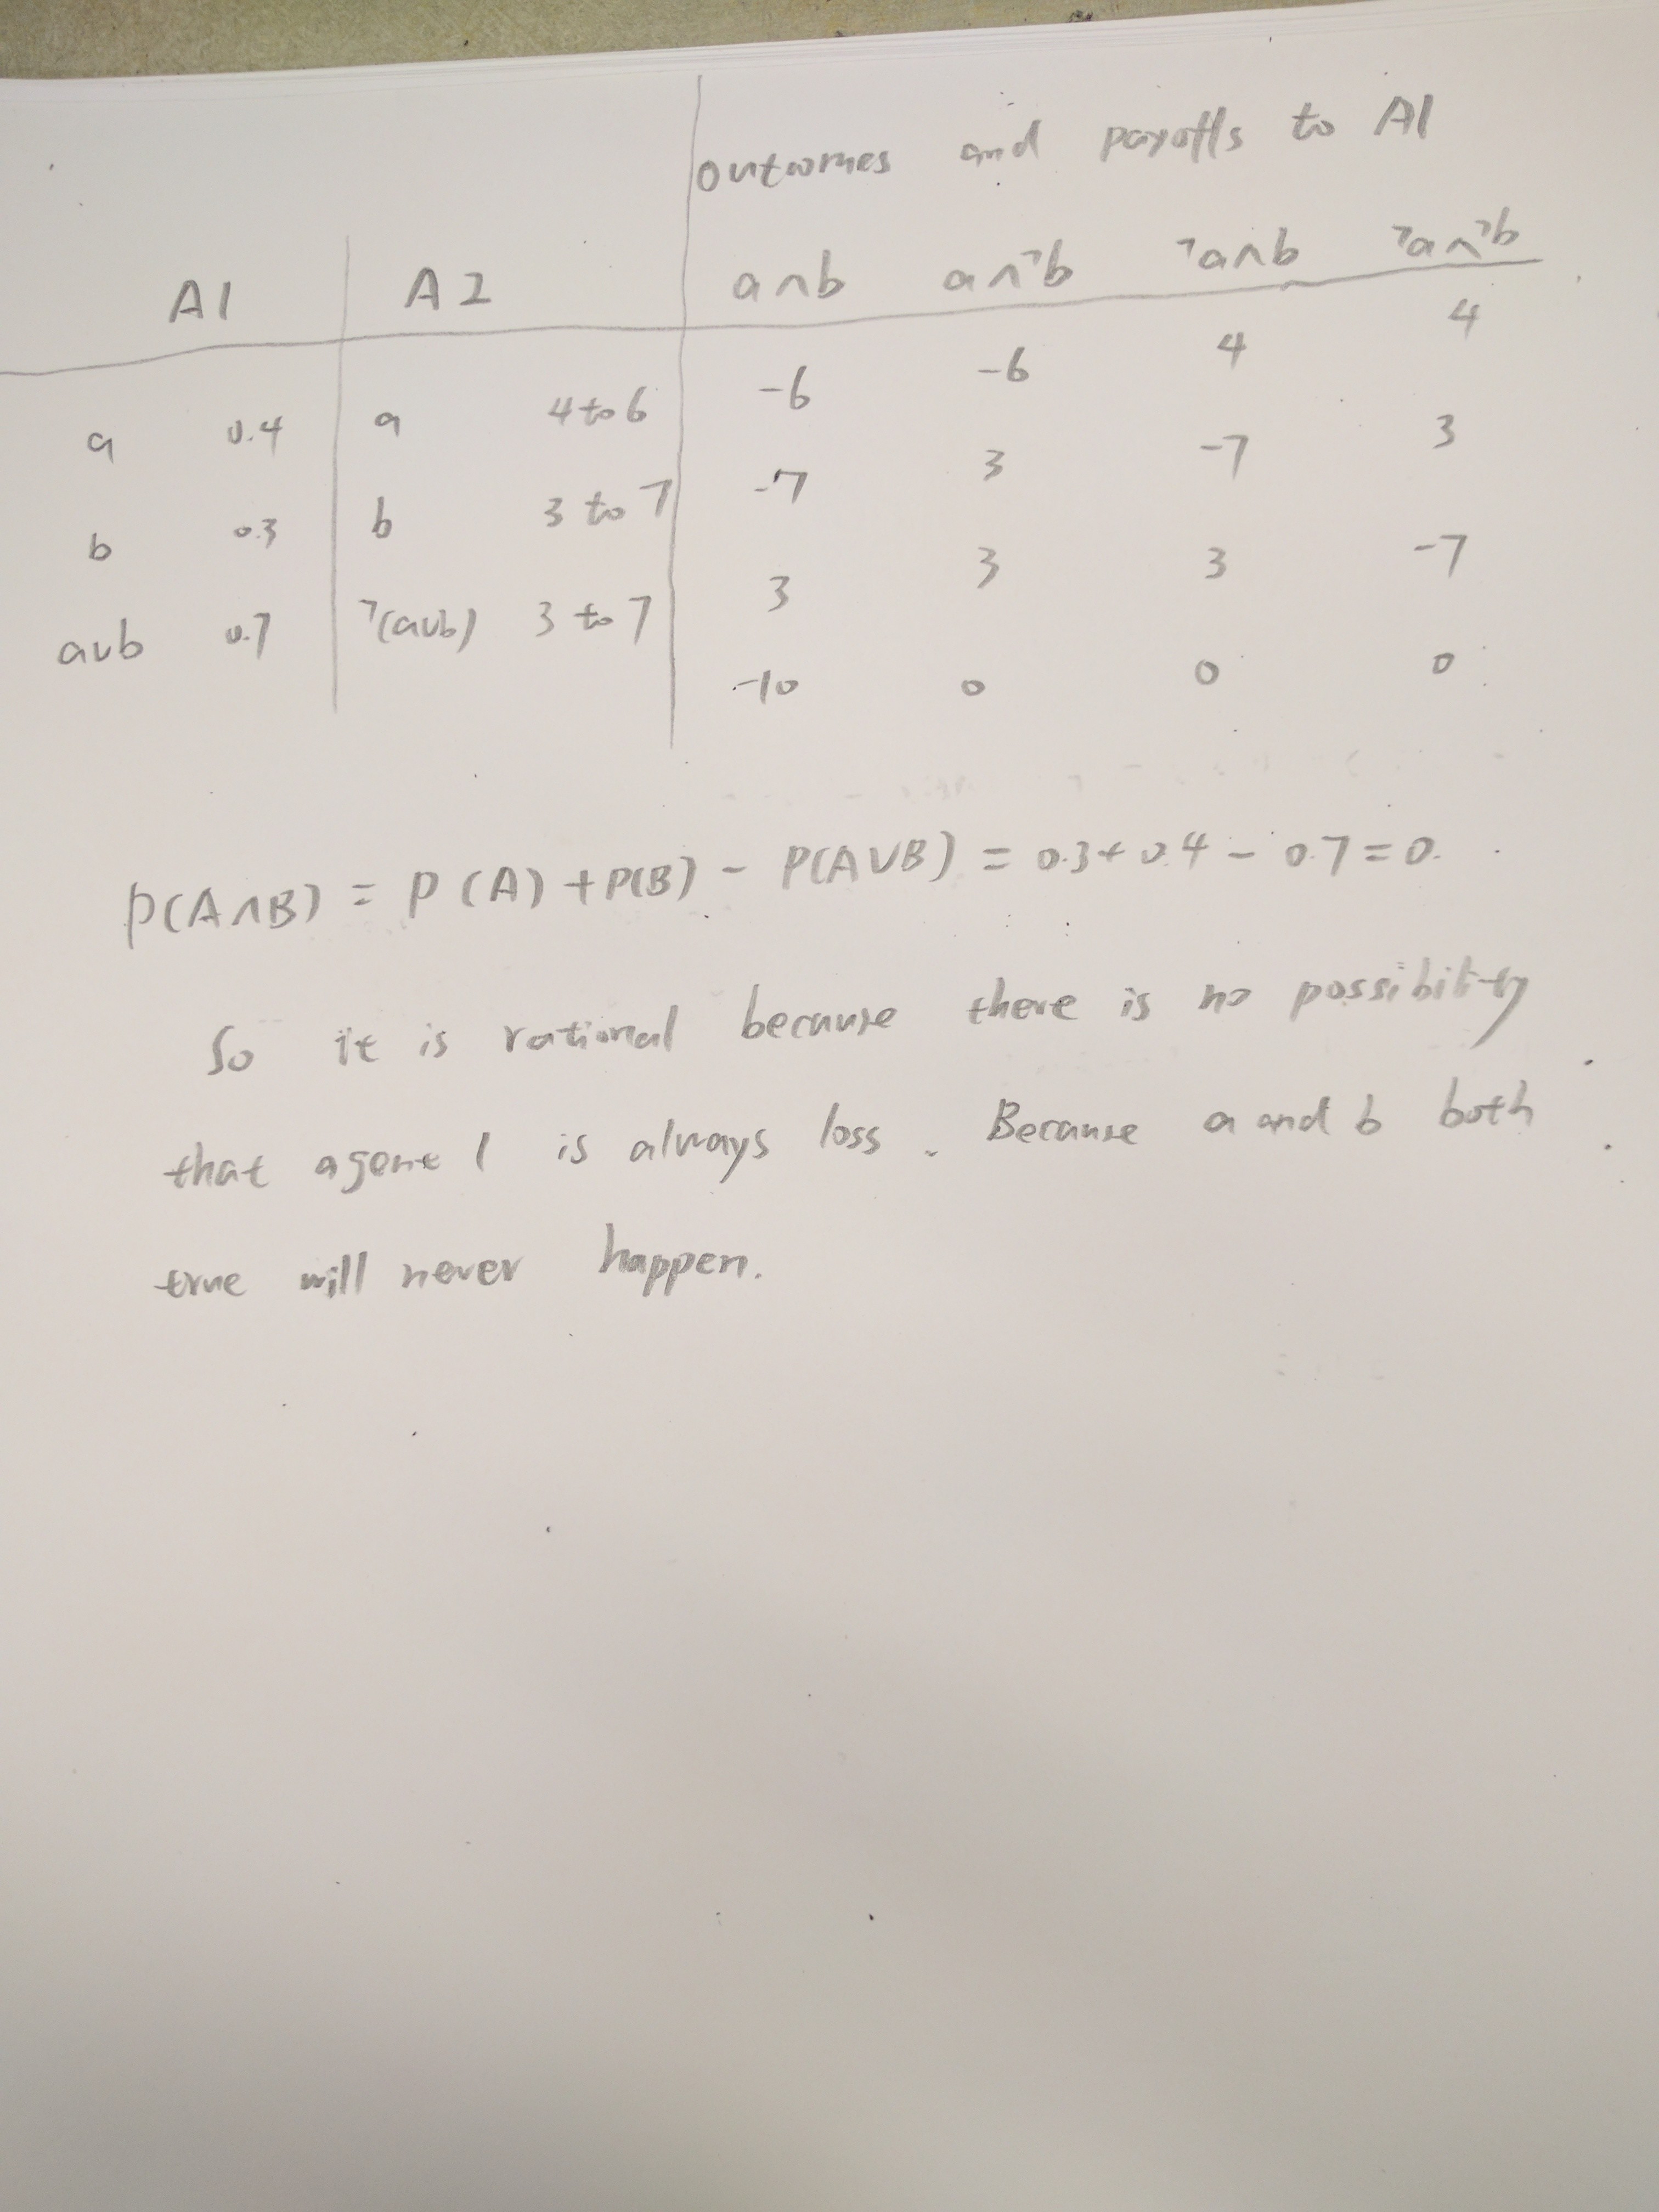 outcomes and payoffs to A1
A1 A2 a∧b a∧¬b ¬a∧b ¬a∧¬b
a 0.4 a 4 to 6 -6 -6 4 4
b 0.3 b 3 to 7 -7 3 -7 3
a∨b 0.7 ¬(a∨b) 3 to 7 3 3 3 -7
-10 0 0 0
P(A∧B) = P(A) + P(B) - P(A∨B) = 0.3 + 0.4 - 0.7 = 0.
So it is rational because there is no possibility
that agent 1 is always loss. Because a and b both
true will never happen.